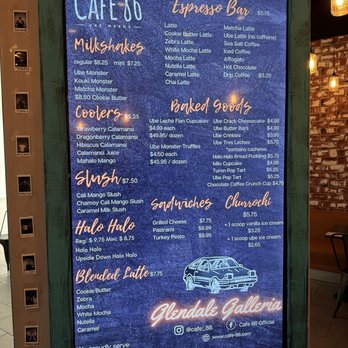 CAFE 86
UBE NERDS
Milkshakes
regular $8.25 mini $7.25
Ube Monster
Kouki Monster
Matcha Monster
$8.50 Cookie Butter
Coolers $5.25
Strawberry Calamansi
Dragonberry Calamansi
Hibiscus Calamansi
Calamansi Juice
Mahalo Mango
Slush $7.50
Cali Mango Slush
Chamoy Cali Mango Slush
Caramel Milk Slush
Halo Halo
Reg: $ 9.75 Mini: $ 8.75
Halo Halo
Upside Down Halo Halo
Blended Latte $7.75
Cookie Butter
Zebra
Mocha
White Mocha
Nutella
Caramel
proudly serve
Espresso Bar $5.75
Latte
Cookie Butter Latte
Zebra Latte
White Mocha Latte
Mocha Latte
Nutella Latte
Caramel Latte
Chai Latte
Matcha Latte
Ube Latte (no caffeine)
Sea Salt Coffee
Iced Coffee
Affogato
Hot Chocolate
Drip Coffee $3.25
Baked Goods
Ube Leche Flan Cupcakes
$4.99 each
$45.95 / dozen
Ube Monster Truffles
$4.50 each
$45.95 / dozen
Ube Crack Cheesecake $4.99
Ube Butter Bar $4.99
Ube Crinkles $4.50
Ube Tres Leches $5.75
*contains cashews
Halo Halo Bread Pudding $5.75
Milo Cupcake $4.75
Turon Pop Tart $5.25
Ube Pop Tart $5.25
Chocolate Coffee Crunch Cup $4.75
Sadwiches
Grilled Cheese $7.75
Pastrami $8.75
Turkey Pesto $8.90
Churrochi
$5.75
+ 1 scoop vanilla ice cream
$5.75
+ 1 scoop ube ice cream
$2.65
Glendale Galleria
@cafe_86
Cafe 86 Official
www.cafe-86.com